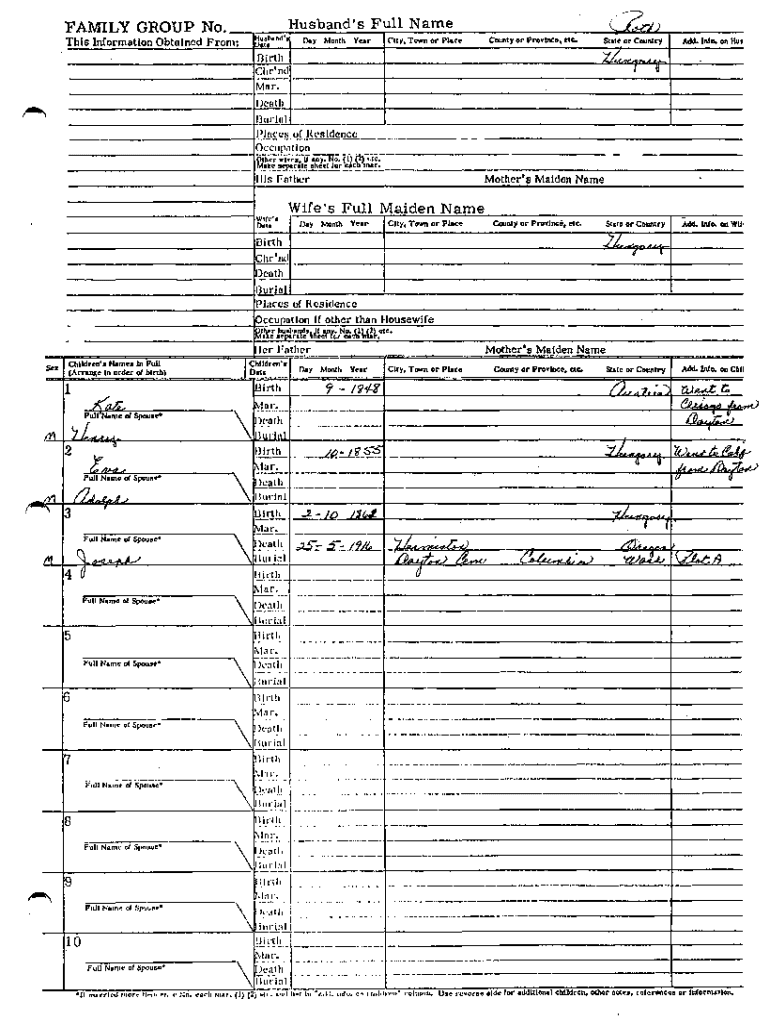 FAMILY GROUP No. Husband's Full Name Roth
This Information Obtained From: Husband's Date Day Month Year City, Town or Place County or Province, etc. State or Country Add. Info. on Hus
Birth Hungary
Chr'nd
Mar.
Death
Burial
Places of Residence
Occupation
Other wives, if any. No. (1) (2) etc.
Make separate sheet for each mar.
His Father Mother's Maiden Name
Wife's Full Maiden Name
Wife's Date Day Month Year City, Town or Place County or Province, etc. State or Country Add. Info. on Wif
Birth Hungary
Chr'nd
Death
Burial
Places of Residence
Occupation if other than Housewife
Other husbands, if any. No. (1) (2) etc.
Make separate sheet for each mar.
Her Father Mother's Maiden Name
Sex Children's Names in Full (Arrange in order of birth) Children's Date Day Month Year City, Town or Place County or Province, etc. State or Country Add. Info. on Chil
1 Birth 9 - 1848 Austria Went to
Kate Mar. Chicago from
Full Name of Spouse* Death Dayton
M Henry Burial
2 Birth 10-1855 Hungary Went to Calif
Eva Mar. from Dayton
Full Name of Spouse* Death
M Adolph Burial
3 Birth 2-10 1862 Hungary
Mar.
Full Name of Spouse* Death 25-5-1916 Hermiston Oregon
M Joseph Burial Dayton Cem Columbia Wash Plot A
4 Birth
Mar.
Full Name of Spouse* Death
Burial
5 Birth
Mar.
Full Name of Spouse* Death
Burial
6 Birth
Mar.
Full Name of Spouse* Death
Burial
7 Birth
Mar.
Full Name of Spouse* Death
Burial
8 Birth
Mar.
Full Name of Spouse* Death
Burial
9 Birth
Mar.
Full Name of Spouse* Death
Burial
10 Birth
Mar.
Full Name of Spouse* Death
Burial
*If married more than once No. each mar. (1) (2) etc. and list in "Add. info. on children" column. Use reverse side for additional children, other notes, references or information.